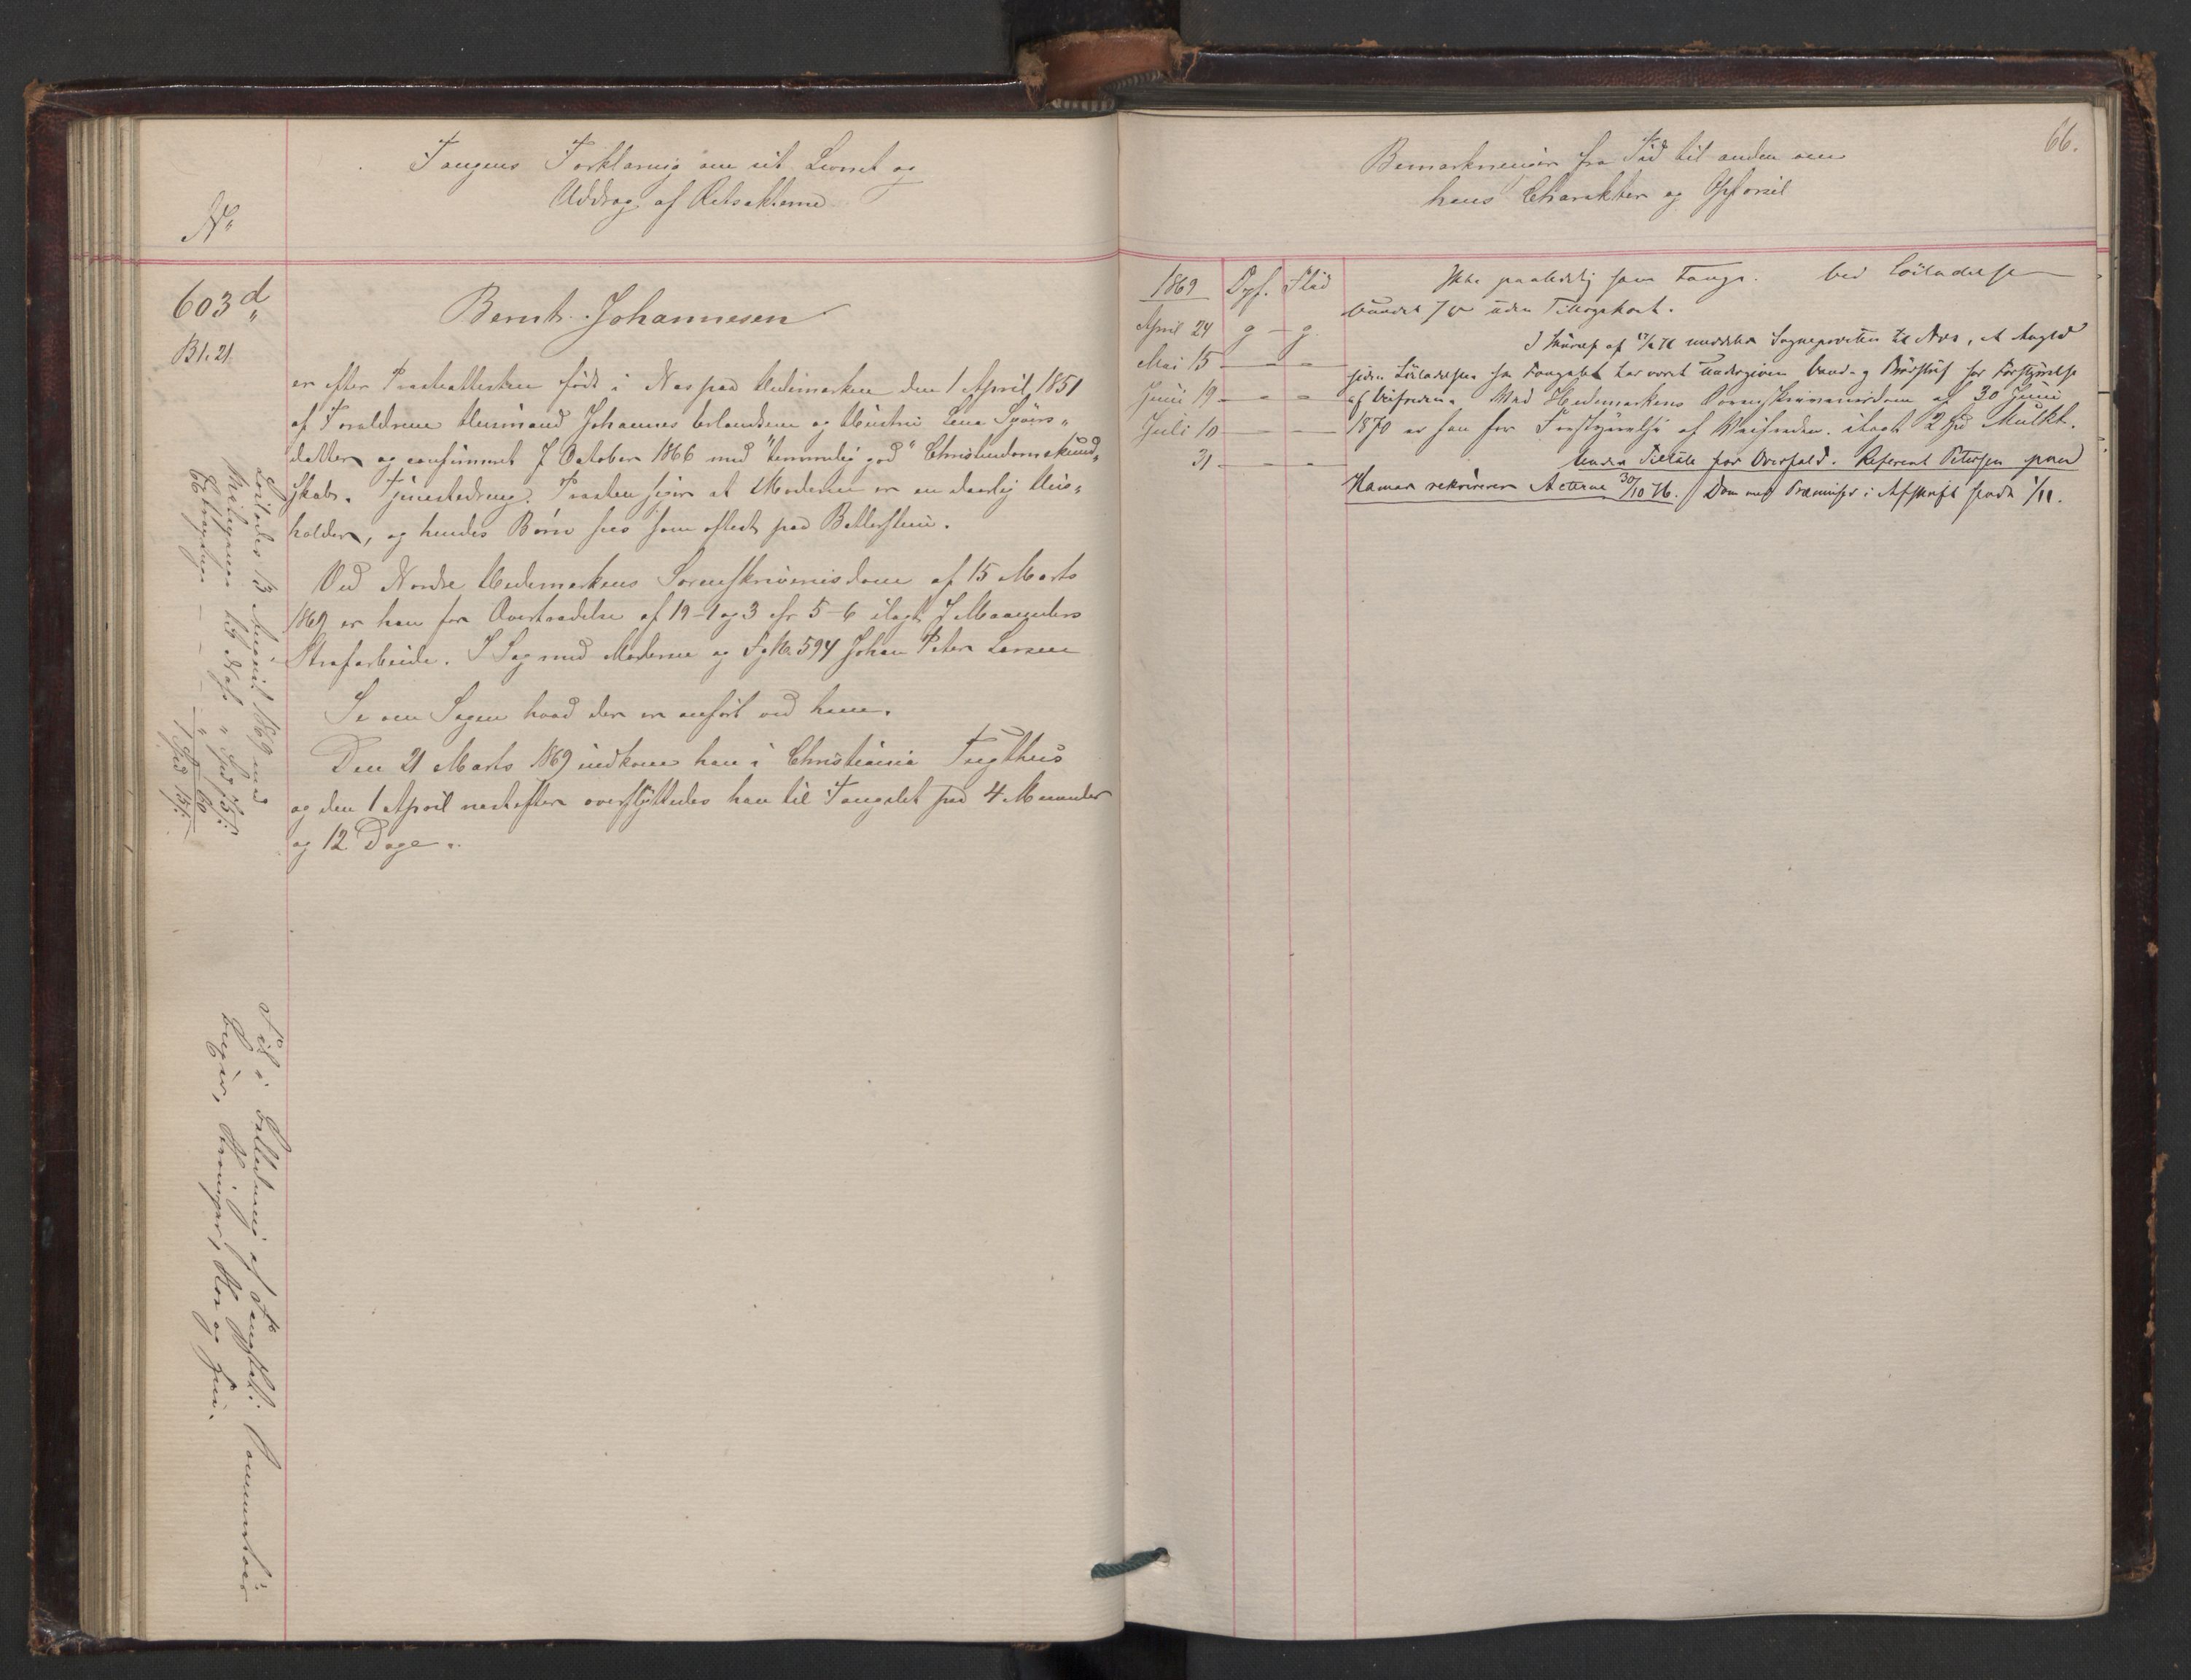 Fangens Forklaring om sit Levnet og
Uddrag af Retsakterne
No
603 d
Bl. 21
Bernt Johannesen
er efter Præsteattesten født i Næs paa Hedemarken den 1 April 1851
af Forældrene Husmand Johannes Erlandsen og Hustru Lena Syvers„
datter og confirmeret 7 October 1866 med "temmelig god" Christendomskund„
skab. Tjenestedreng. Præsten siger at Moderen er en daarlig Hus„
holder, og hendes Børn sees som oftest paa Betlerstien.
Ved Nordre Hedemarkens Sorenskriverisdom af 15 Marts
1869 er han for Overtrædelse af 19-1 og 3 cfr 5-6 ilagt 7 Maaneders
Strafarbeide. I Sag med Moderen og Fg No. 594 Johan Peter Larsen
Se om Sagen hvad der er anført ved ham.
Den 21 Marts 1869 indkom han i Christiania Tugthus
og den 1 April næstefter overflyttedes han til Fængslet paa 4 Maaneder
og 12 Dage.
Løslades 13 August 1869 med
Reisepenge til Næs
Extrapenge
Feil i Beklædning af Fangeskab:
bøger,
66.
Bemærkninger fra Tid til anden om
hans Charakter og Opførsel
1869 Opf. Flid
April 24 g - g
Mai 15 - - -
Juni 19 - - -
Juli 10 - - -
31 - - -
Ikke paalidelig som Fange. Ved Løsladelse
uden Tillægskost.
I Skrivelse af 17/2 71 meddeler Sognepræsten til Næs, at
siden Løsladelsen fra Fængslet har været undergiven Vand- og Brødstraf for Forstyrrelse
af Veifreden. Ved Hedemarkens Sorenskriverisdom af 30 Juni
1870 er han for Forstyrrelse af Veifreden ilagt 2 Spd Mulkt.
Under Tiltale for Overfald. Referent Petersen paa
Hamar rekvirerer Acterne 30/10 76. / Dom med Præmisser i Afskrift sendt 1/11.